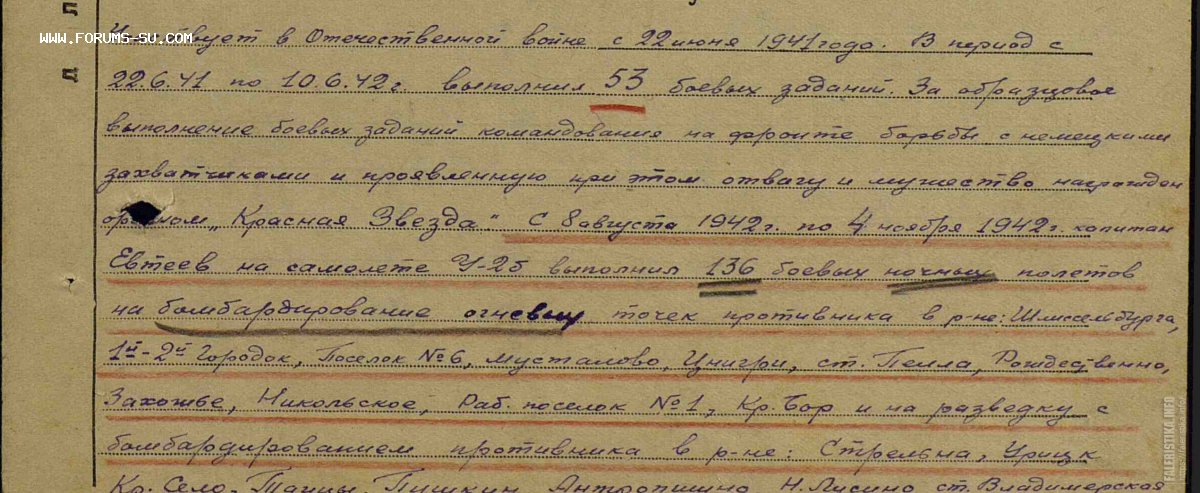 WWW.FORUMS-SU.COM
в Отечественной войне с 22 июня 1941 года. В период с
22.6.41 по 10.6.42 г. выполнил 53 боевых заданий. За образцовое
выполнение боевых заданий командования на фронте борьбы с немецкими
захватчиками и проявленную при этом отвагу и мужество награжден
орденом „Красная Звезда“. С 8 августа 1942 г. по 4 ноября 1942 г. капитан
Евтеев на самолете У-2б выполнил 136 боевых ночных полетов
на бомбардирование огневых точек противника в р-не: Шлиссельбурга,
1й-2й Городок, Поселок №6, Мусталово, ст. Пелла, Рождественно,
Захожье, Никольское, Раб. поселок №1, Кр. Бор и на разведку с
бомбардированием противника в р-не: Стрельна, Урицк
Кр. Село, Тайцы, Пушкин, Антропшино, Н. Лисино, ст. Владимерская
FALERISTIKA.INFO